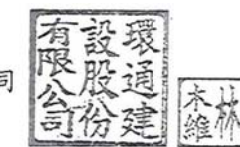 司
環通建
設股份
有限公司
林
木維